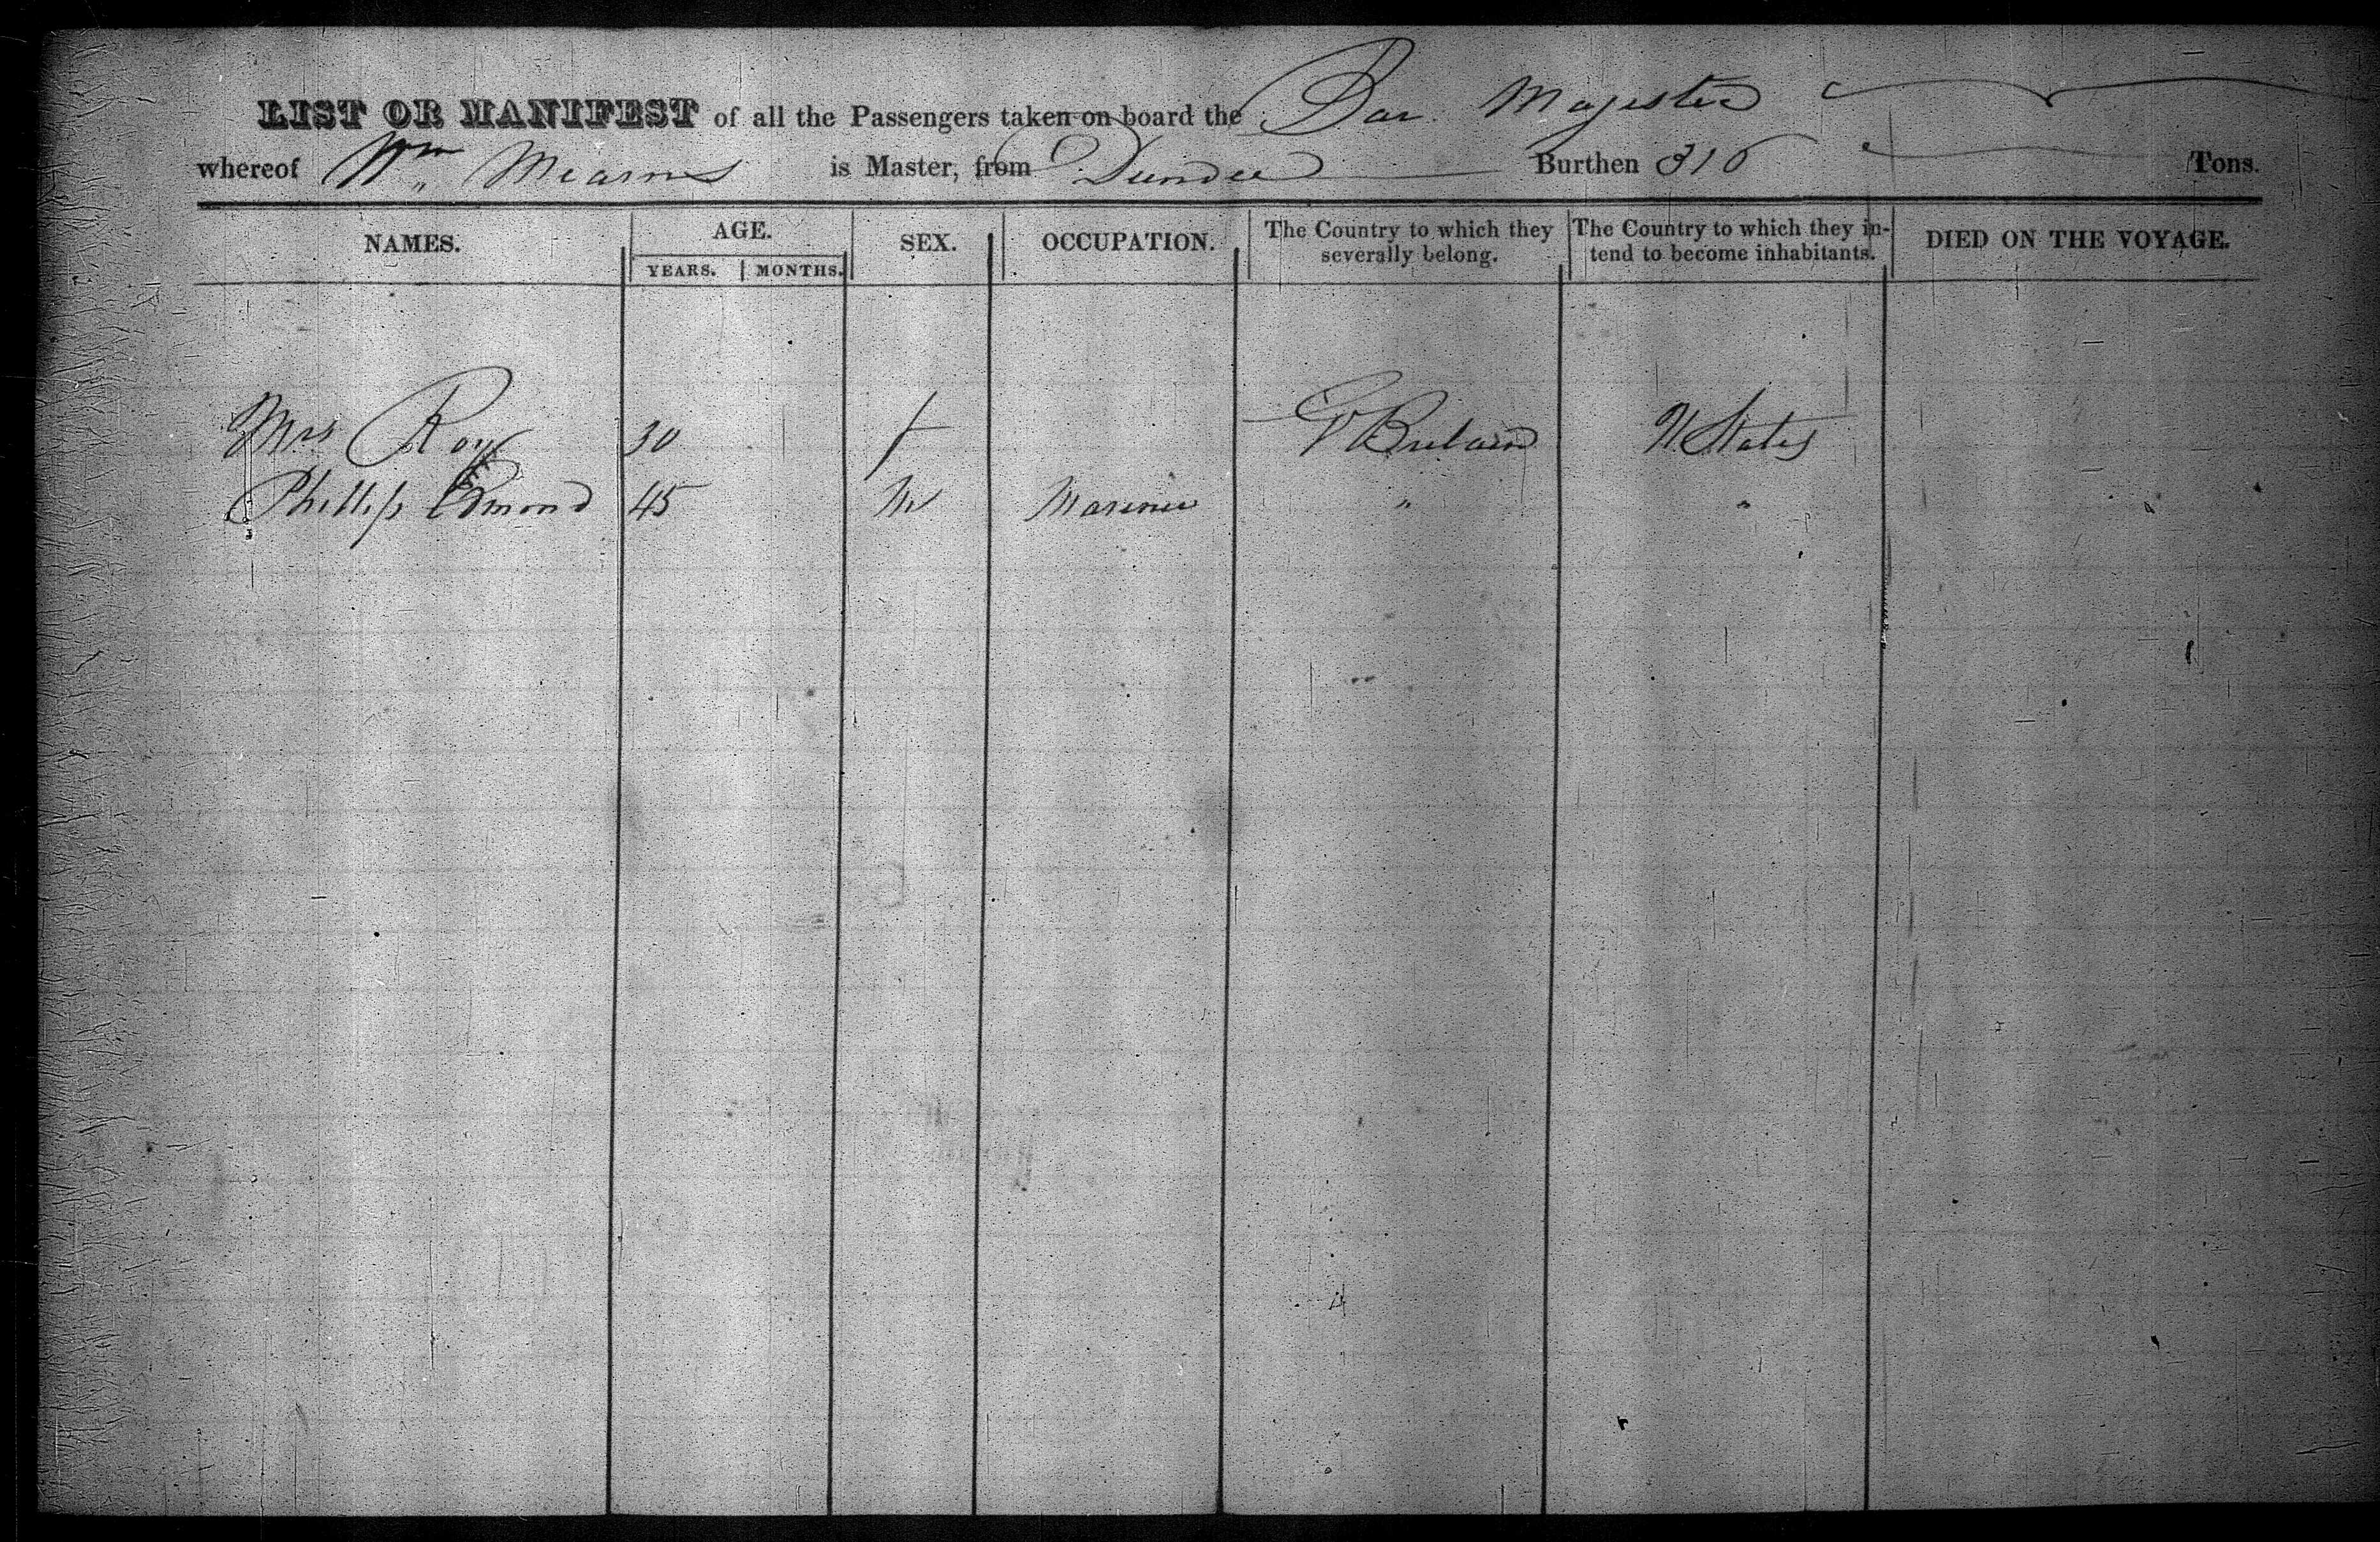 LIST OR MANIFEST of all the Passengers taken on board the Bar Majestic
whereof Wm Mearns is Master, from Dundee Burthen 310 Tons.
NAMES. AGE. SEX. OCCUPATION. The Country to which they severally belong. The Country to which they intend to become inhabitants. DIED ON THE VOYAGE.
YEARS. MONTHS.
Mrs Roy 30 f Gt Britain U States
Phillip Edmond 45 M Mariner " "